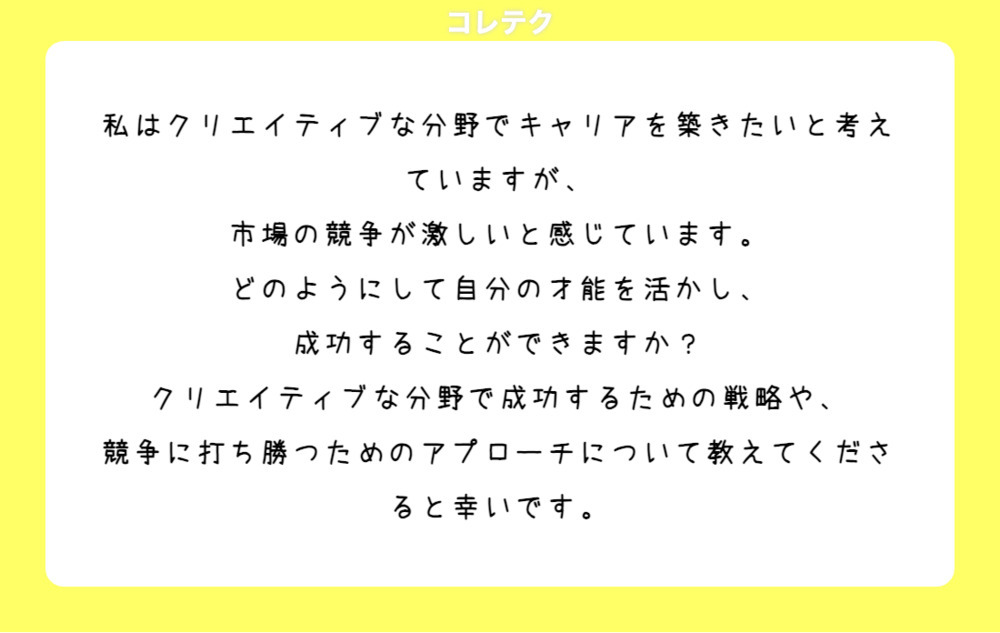 コレテク
私はクリエイティブな分野でキャリアを築きたいと考え
ていますが、
市場の競争が激しいと感じています。
どのようにして自分の才能を活かし、
成功することができますか？
クリエイティブな分野で成功するための戦略や、
競争に打ち勝つためのアプローチについて教えてくださ
ると幸いです。